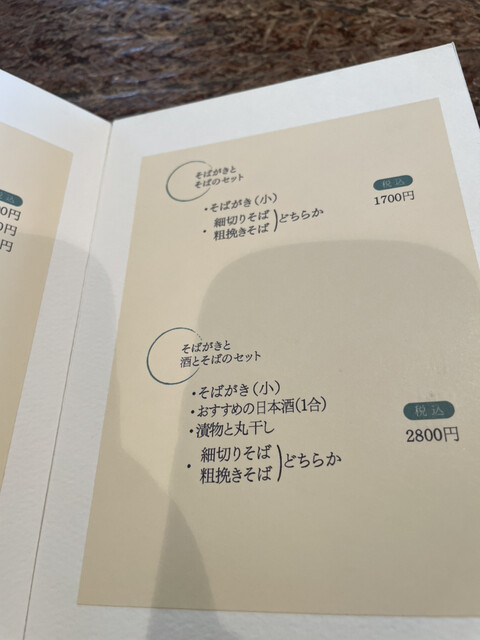 そばがきと
そばのセット
税込
・そばがき(小)
1700円
・細切りそば
粗挽きそば)どちらか
そばがきと
酒とそばのセット
・そばがき(小)
・おすすめの日本酒(1合)
税込
・漬物と丸干し
2800円
・細切りそば
粗挽きそば)どちらか